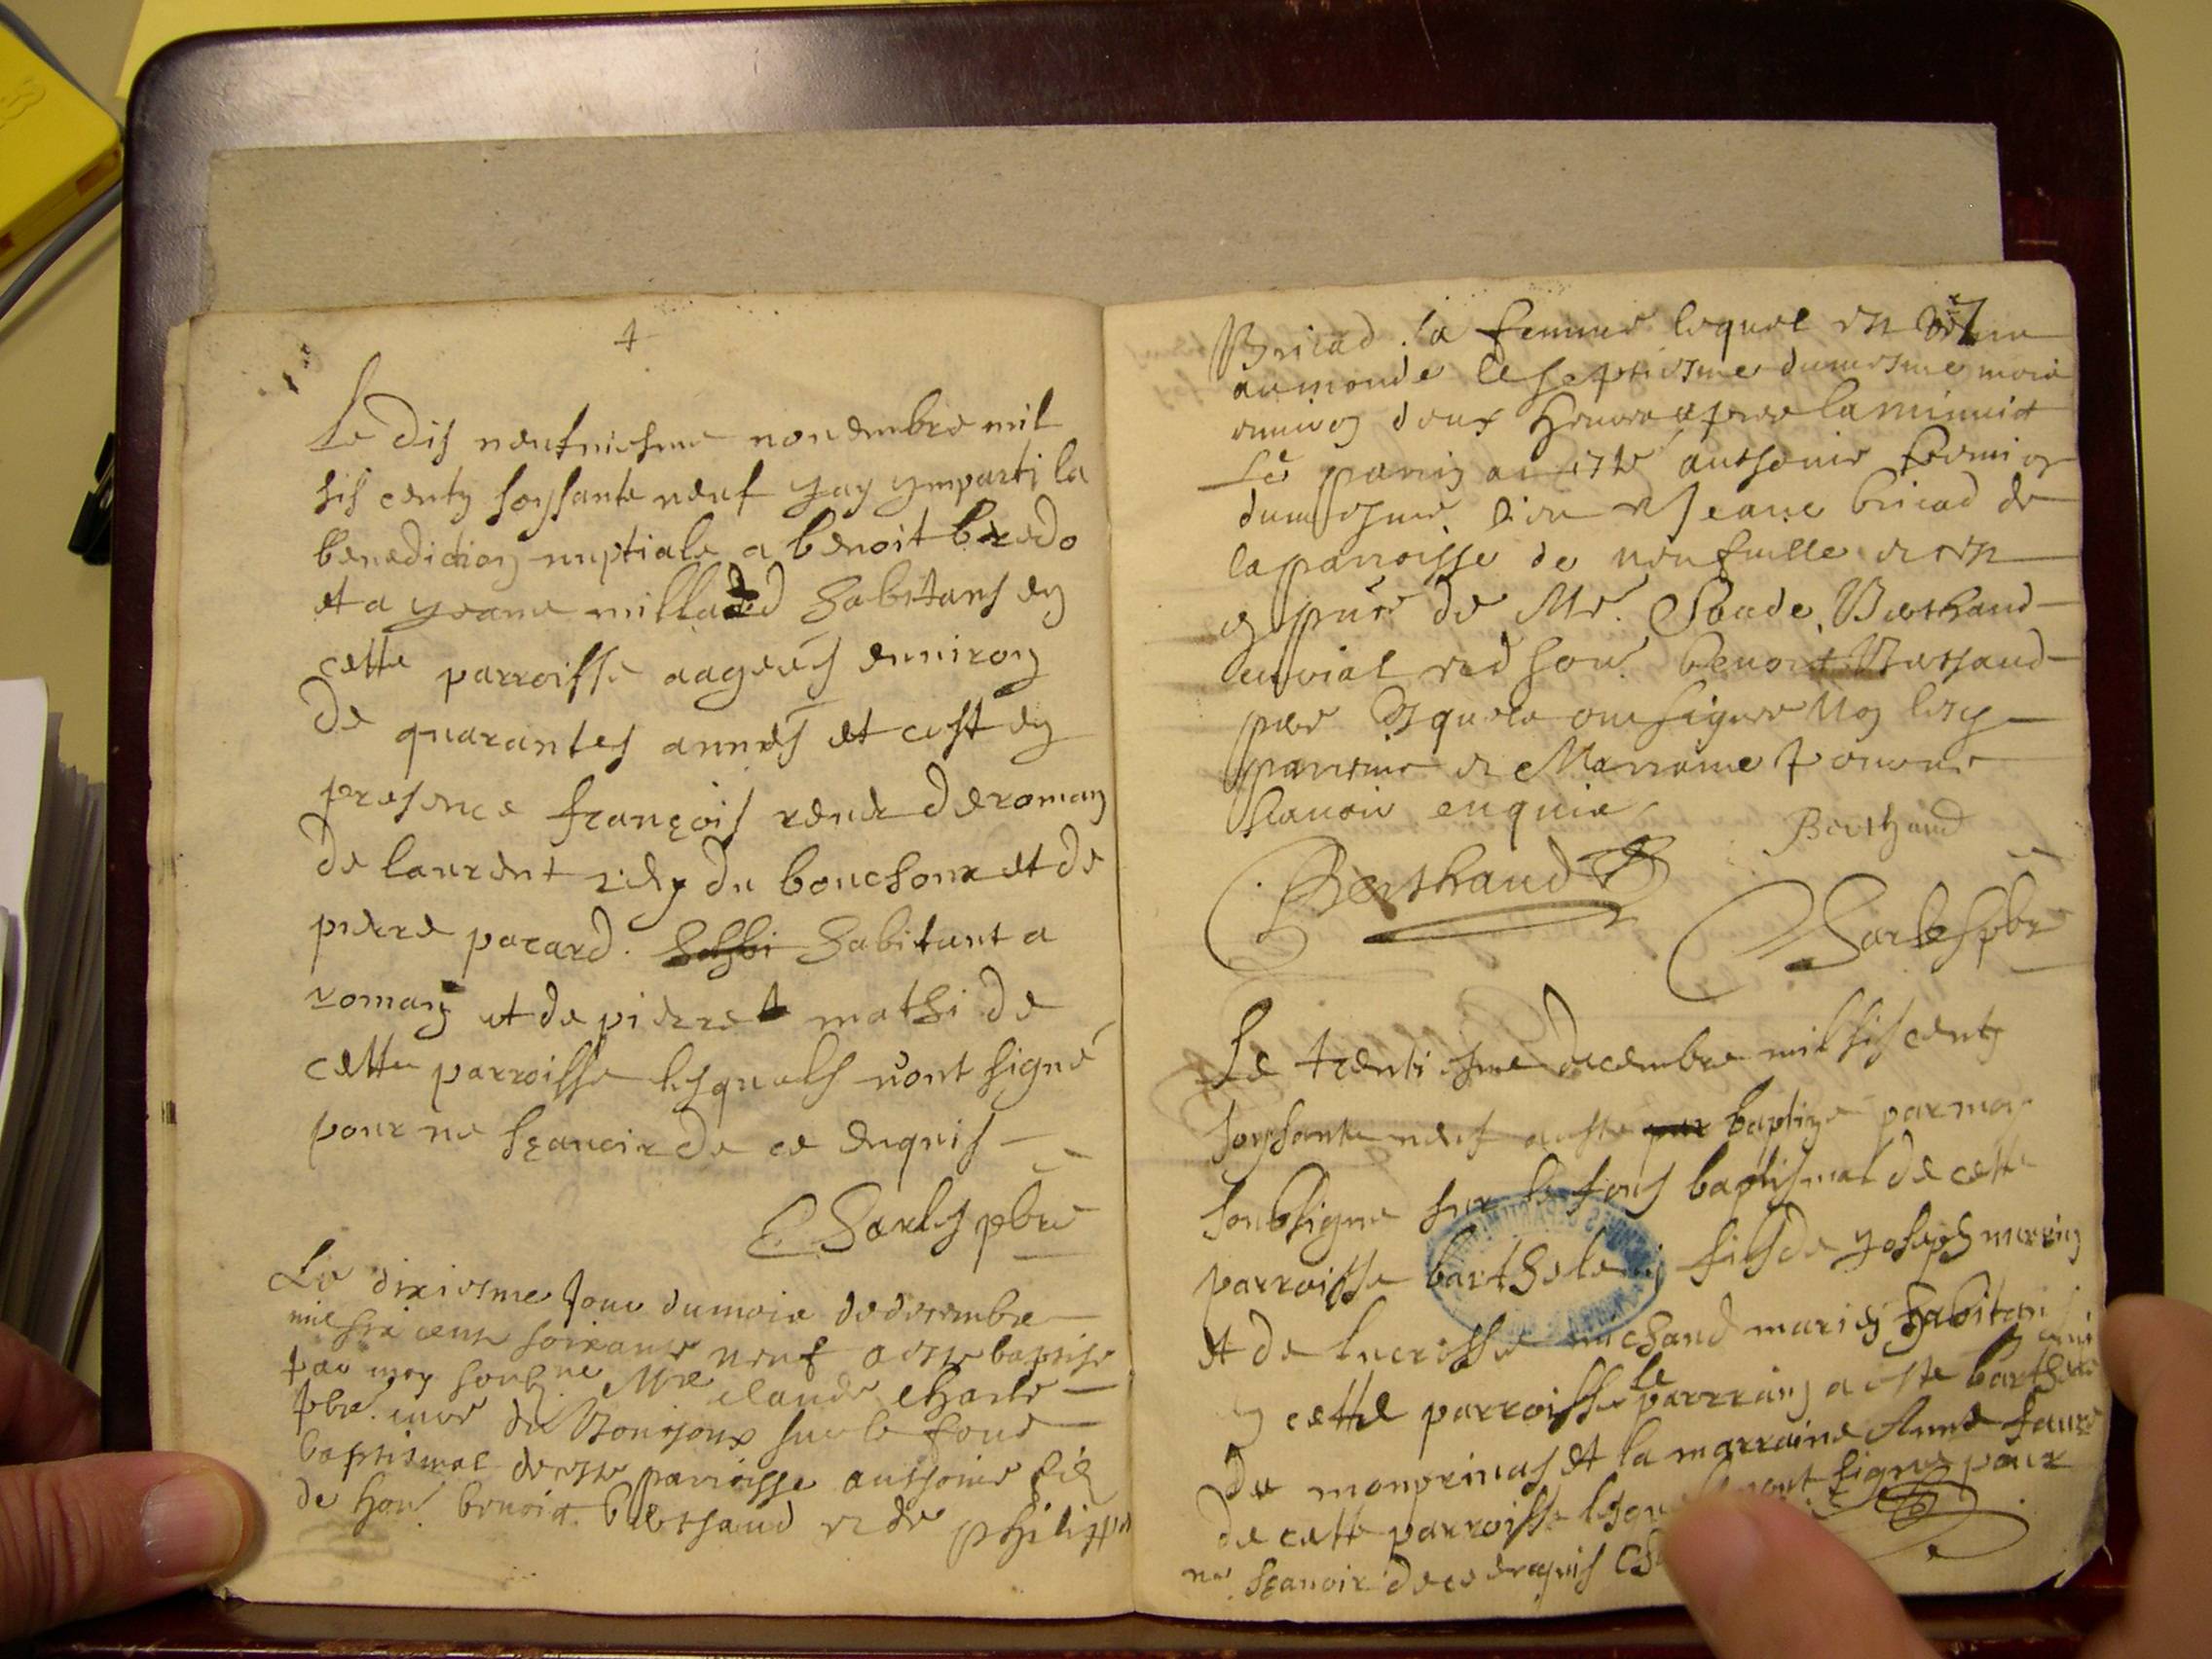 4
Le dis neufuiesme nouembre mil
sis centz soyssante neuf yay ymparti la
benediction nuptiale a benoit bredo
et a yeane millaud habitans en
cette parroisse aagees enuiron
de quarantes annes et cest en
presence françois rende de roman
de laurent rey du bouchoux et de
pierre pacard. habitant a
roman et de pierre mathi de
cette parroisse lesquels n'ont signé
pour ne sçauoir de ce enquis
Charles pbre
Le dixiesme Jour du mois de decembre
mil six cens soixante neuf a este baptisé
par moy soubzne Mre claude Charle
pbre. cure du Bouchoux sur le fons
baptismal de cette parroisse anthoine filz
de hon. benoist berthaud et de philippe
Bricad sa femme lequel est venu
au monde le septiesme du mesme mois
enuiron deux heures apres la minuit
Le parrin a esté anthoine
du mesme lieu et Jeane bricad de
la parroisse de neufuille et est
en pnce de Mr. Claude Berthaud
et hon. benoist Berthaud
pere lesquels ont signé non les
parrine et Marraine pour ne
sçauoir enquis
Berthaud
Berthaud
Charles pbre
Le trentiesme decembre mil sis centz
soyssante neuf a este baptize par moy
soubsigne sur le fons baptismal de cette
parroisse barthelemy fils de yoseph
et de lucresse michaud mariez habitans
en cette parroisse le parrrain a este barthele
de monprinas et la marraine Anne faure
de cette parroisse lesquels nont signe pour
ne sçauoir de ce enquis